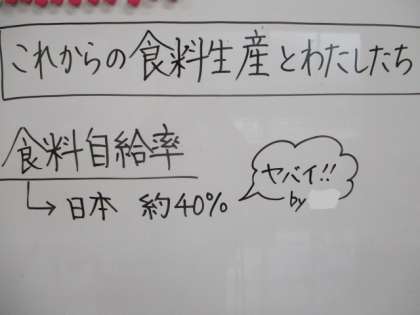 これからの食料生産とわたしたち
食料自給率
→日本 約40%
ヤバイ!!
by